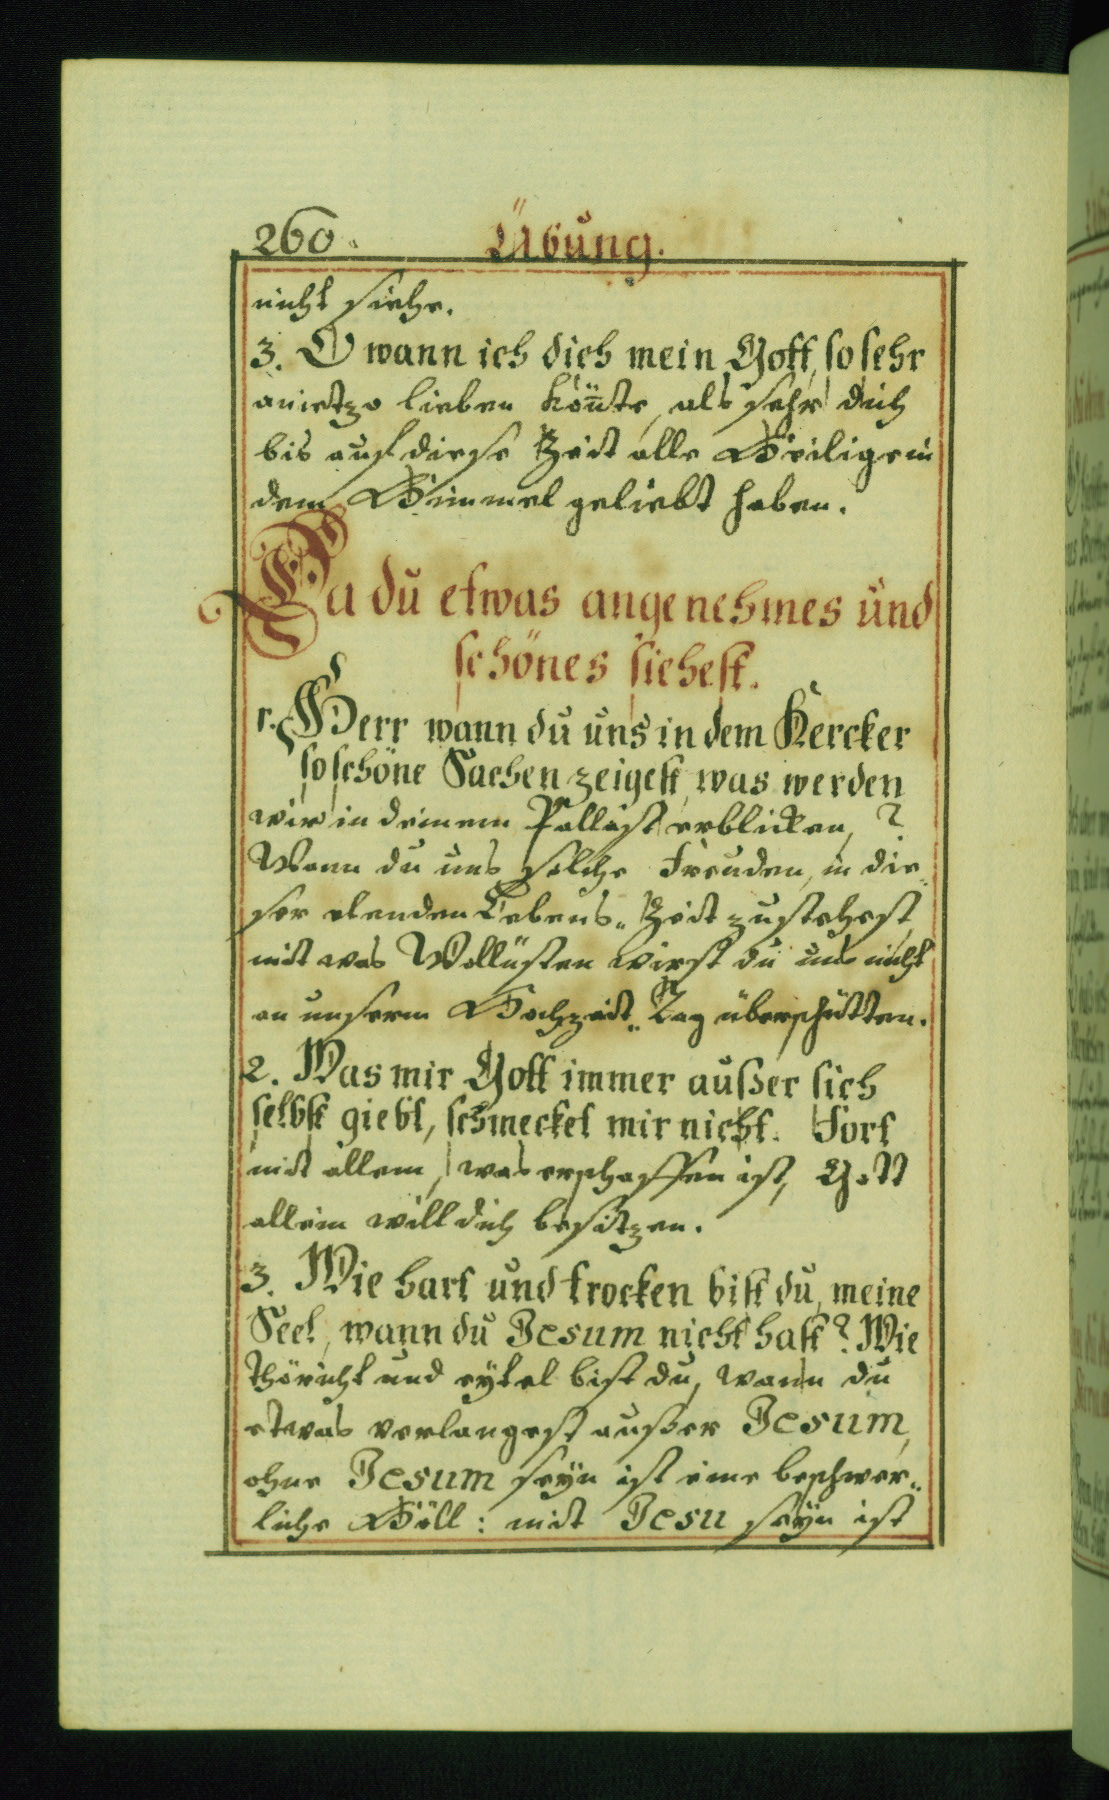 260. Übung.
nicht siehe.
3. O wann ich dich mein Gott, so sehr
anietzo lieben kön̄te, als sehr dich
bis auf diese Zeit alle Heilige in
dem Himmel geliebt haben.
Da du etwas angenehmes und
schönes siehest.
1. Herr wann du uns in dem Kercker
so schöne Sachen zeigest, was werden
wir in deinem Pallast erblicken,?
Wann du uns solche Freuden, in die„
ser elenden Lebens„ Zeit zustehest,
mit was Wollüsten wirst du uns nicht
an unserm Hochzeit„ Tag überschütten.
2. Was mir Gott immer außer sich
selbst giebt, schmecket mir nicht. Fort
mit allem, was erschaffen ist, Gott
allein will dich besitzen.
3. Wie hart und trocken bist du, meine
Seel, wann du Jesum nicht hast? Wie
thöricht und eÿtel bist du, wann du
etwas verlangest außer Jesum,
ohne Jesum seÿn ist eine beschwer„
liche Höll: mit Jesu seÿn ist